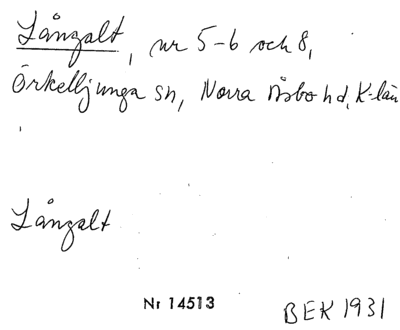 Långalt, nr 5-6 och 8,
Örkelljunga sn, Norra Åsbo hd, K-län
Långalt
Nr 14513
BEK 1931